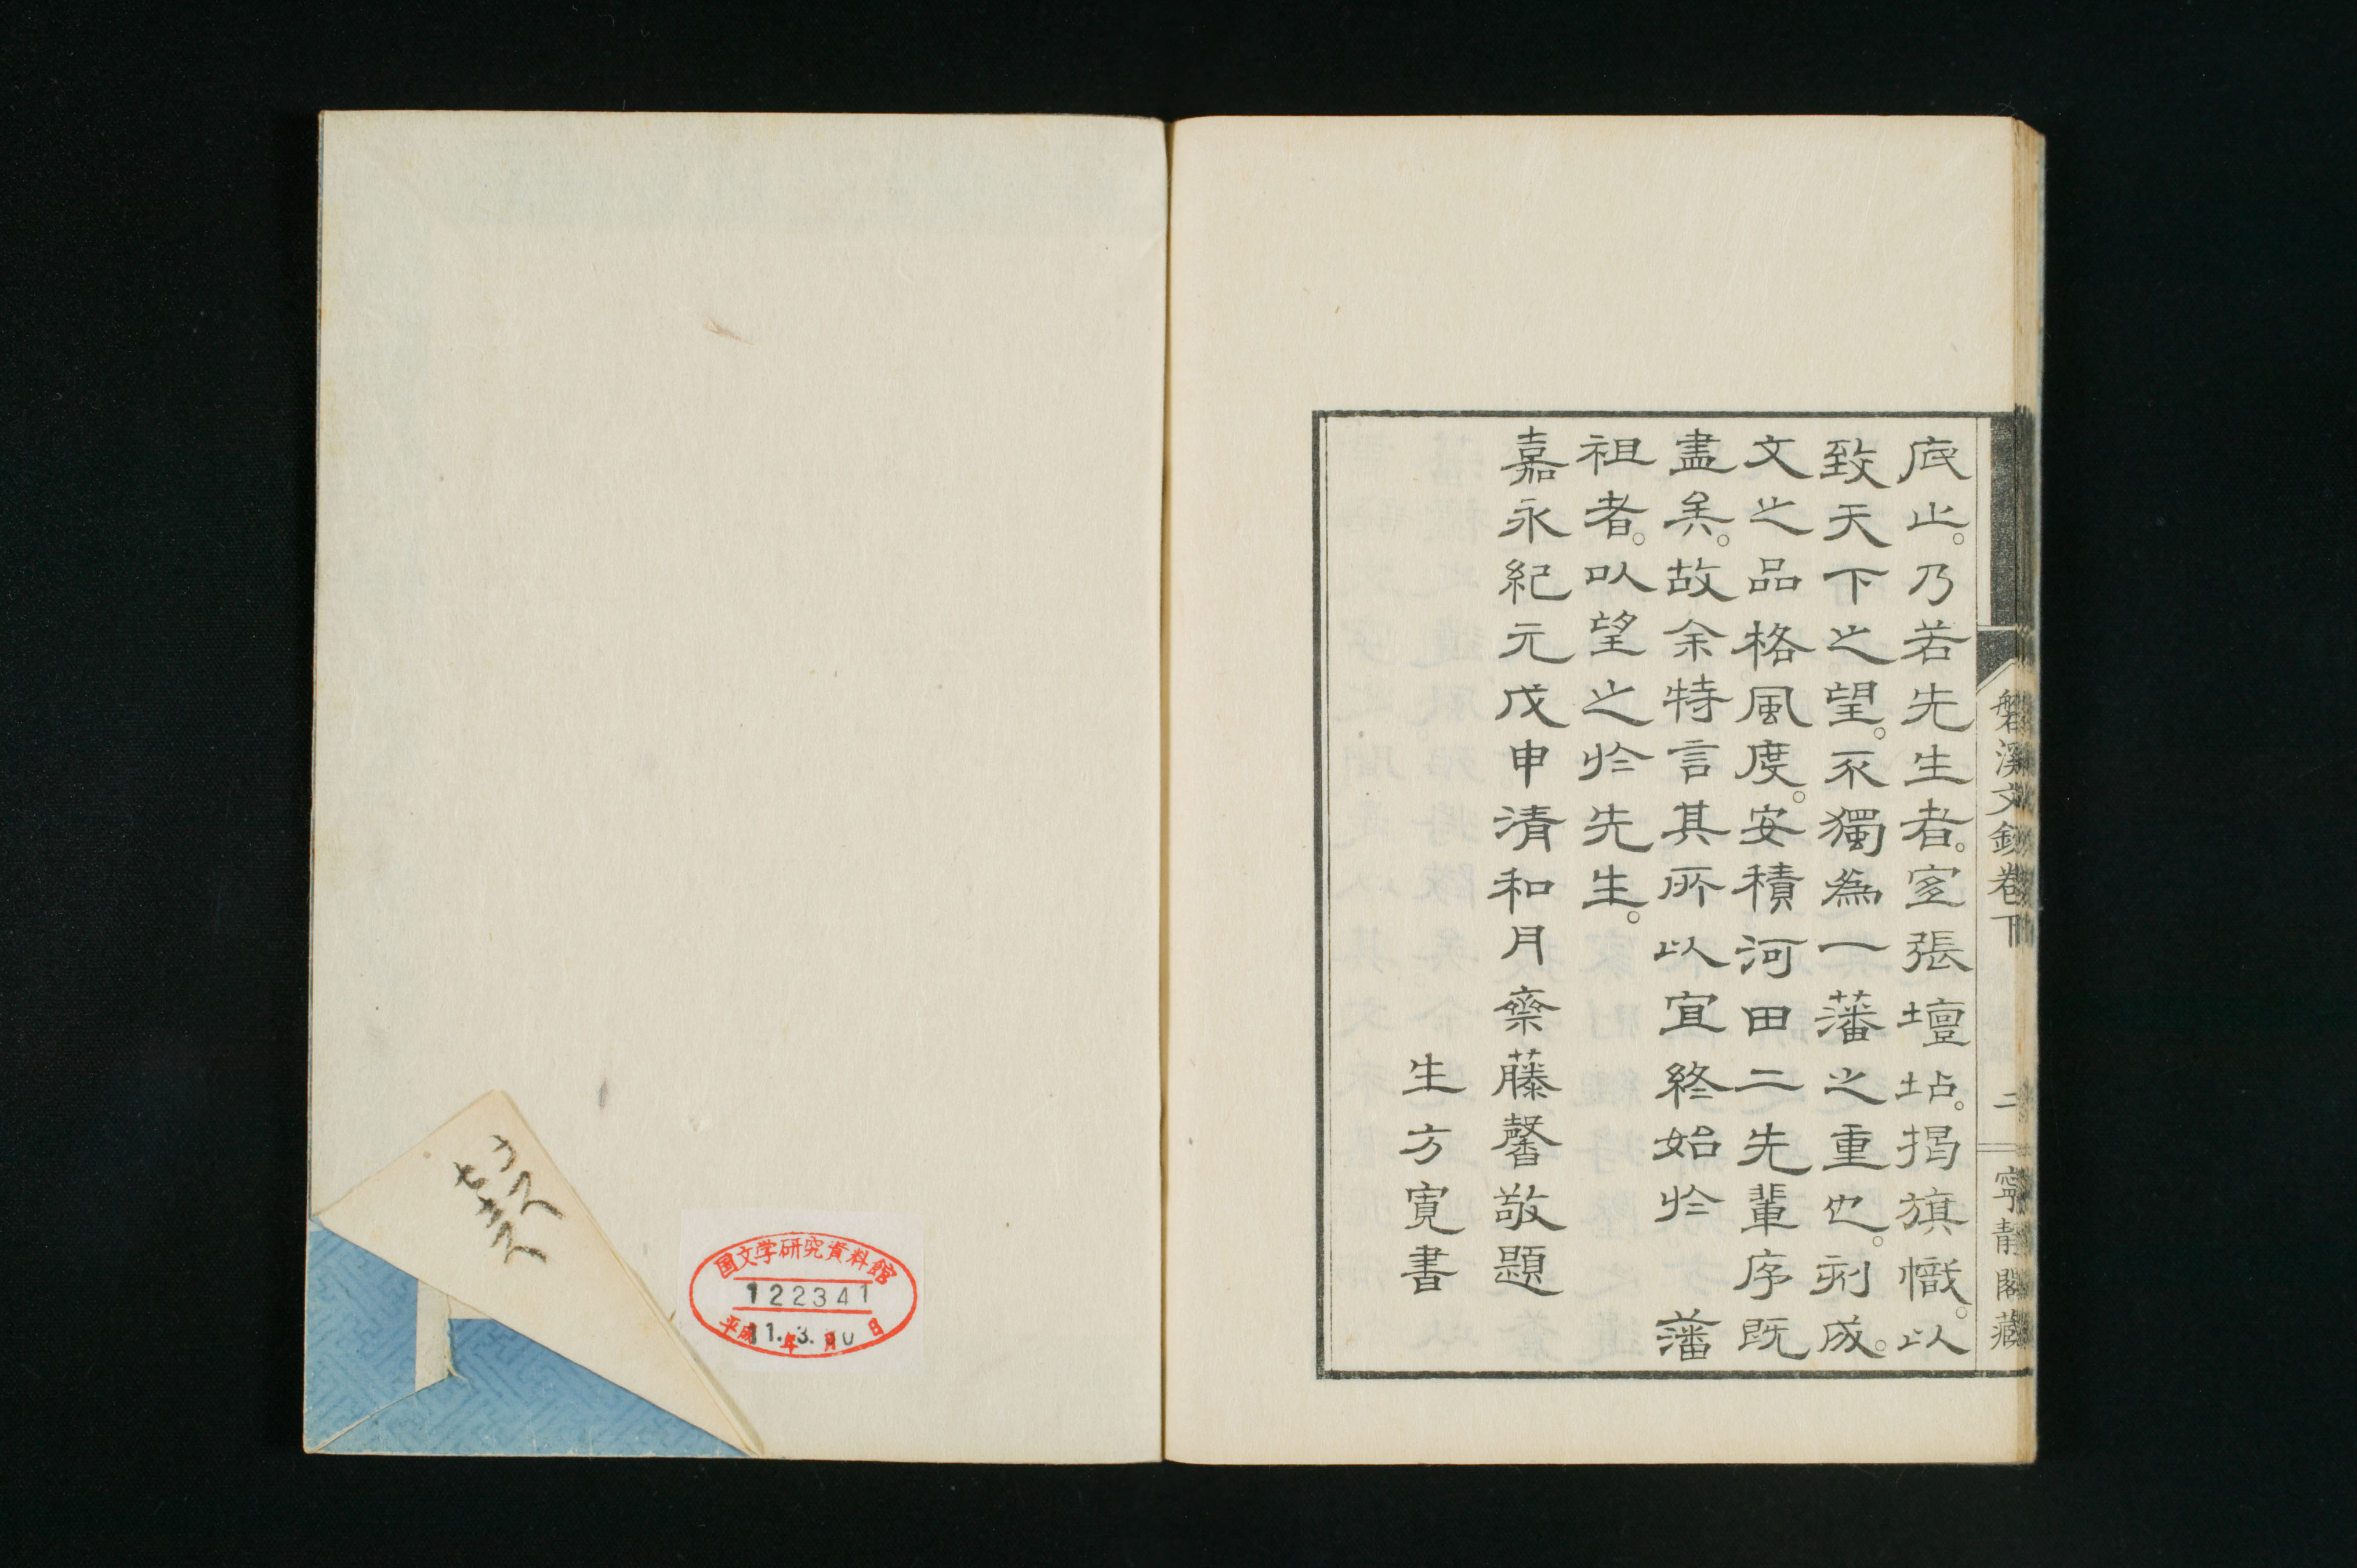 底止。乃若先生者。宜張壇坫。揭旗幟。以
致天下之望。不獨為一藩之重也。刻成。
文之品格風度。安積河田二先輩序既
盡矣。故余特言其所以宜終始於 藩
祖者。以望之於先生。
嘉永紀元戊申清和月齋藤馨敬題
生方寬書
磐溪文鈔卷下
二
寧靜閣藏
国文学研究資料館
122341
平成11年3月10日